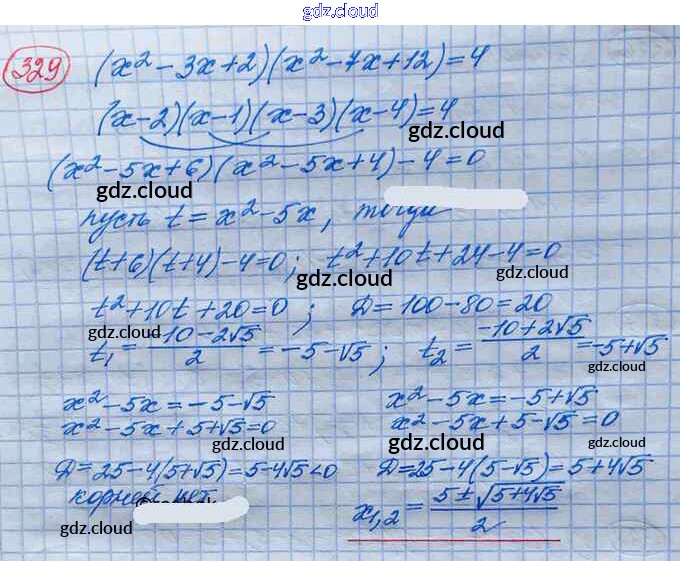 gdz.cloud
gdz.cloud
329 (x² - 3x + 2)(x² - 7x + 12) = 4
(x - 2)(x - 1)(x - 3)(x - 4) = 4
gdz.cloud
(x² - 5x + 6)(x² - 5x + 4) - 4 = 0
gdz.cloud
gdz.cloud
пусть t = x² - 5x, тогда
(t + 6)(t + 4) - 4 = 0; t² + 10t + 24 - 4 = 0
gdz.cloud
gdz.cloud
t² + 10t + 20 = 0; D = 100 - 80 = 20
gdz.cloud
t₁ = (-10 - 2√5)/2 = -5 - √5; t₂ = (-10 + 2√5)/2 = -5 + √5
gdz.cloud
gdz.cloud
x² - 5x = -5 - √5
x² - 5x + 5 + √5 = 0
gdz.cloud
D = 25 - 4(5 + √5) = 5 - 4√5 < 0
корней нет
gdz.cloud
x² - 5x = -5 + √5
x² - 5x + 5 - √5 = 0
gdz.cloud
D = 25 - 4(5 - √5) = 5 + 4√5
x₁,₂ = (5 ± √(5 + 4√5))/2
gdz.cloud